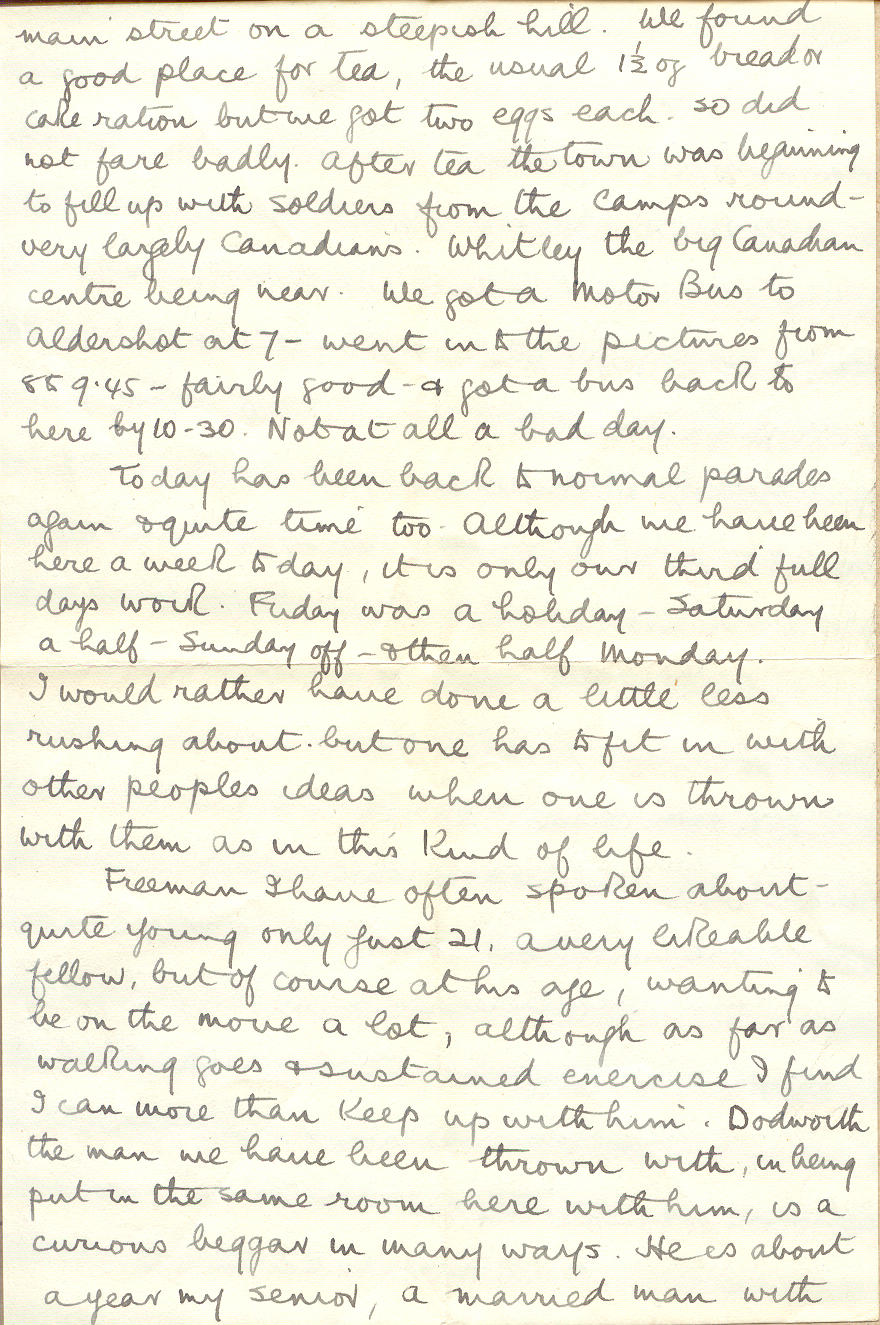 main street on a steepish hill. We found
a good place for tea, the usual 1½ oz bread or
cake ration but we got two eggs each. so did
not fare badly. After tea the town was beginning
to fill up with soldiers from the Camps round -
very largely Canadians. Whitley the big Canadian
centre being near. We got a Motor Bus to
Aldershot at 7 - went in to the pictures from
8 to 9.45 - fairly good - & got a bus back to
here by 10-30. Not at all a bad day.
Today has been back to normal parades
again & quite time too. Although we have been
here a week today, it is only our third full
days work. Friday was a holiday - Saturday
a half - Sunday off - & then half Monday.
I would rather have done a little less
rushing about. but one has to fit in with
other peoples ideas when one is thrown
with them as in this kind of life.
Freeman I have often spoken about -
quite young only just 21, a very likeable
fellow, but of course at his age, wanting to
be on the move a lot, although as far as
walking goes & sustained exercise I find
I can more than keep up with him. Dodworth
the man we have been thrown with, in being
put in the same room here with him, is a
curious beggar in many ways. He is about
a year my senior, a married man with